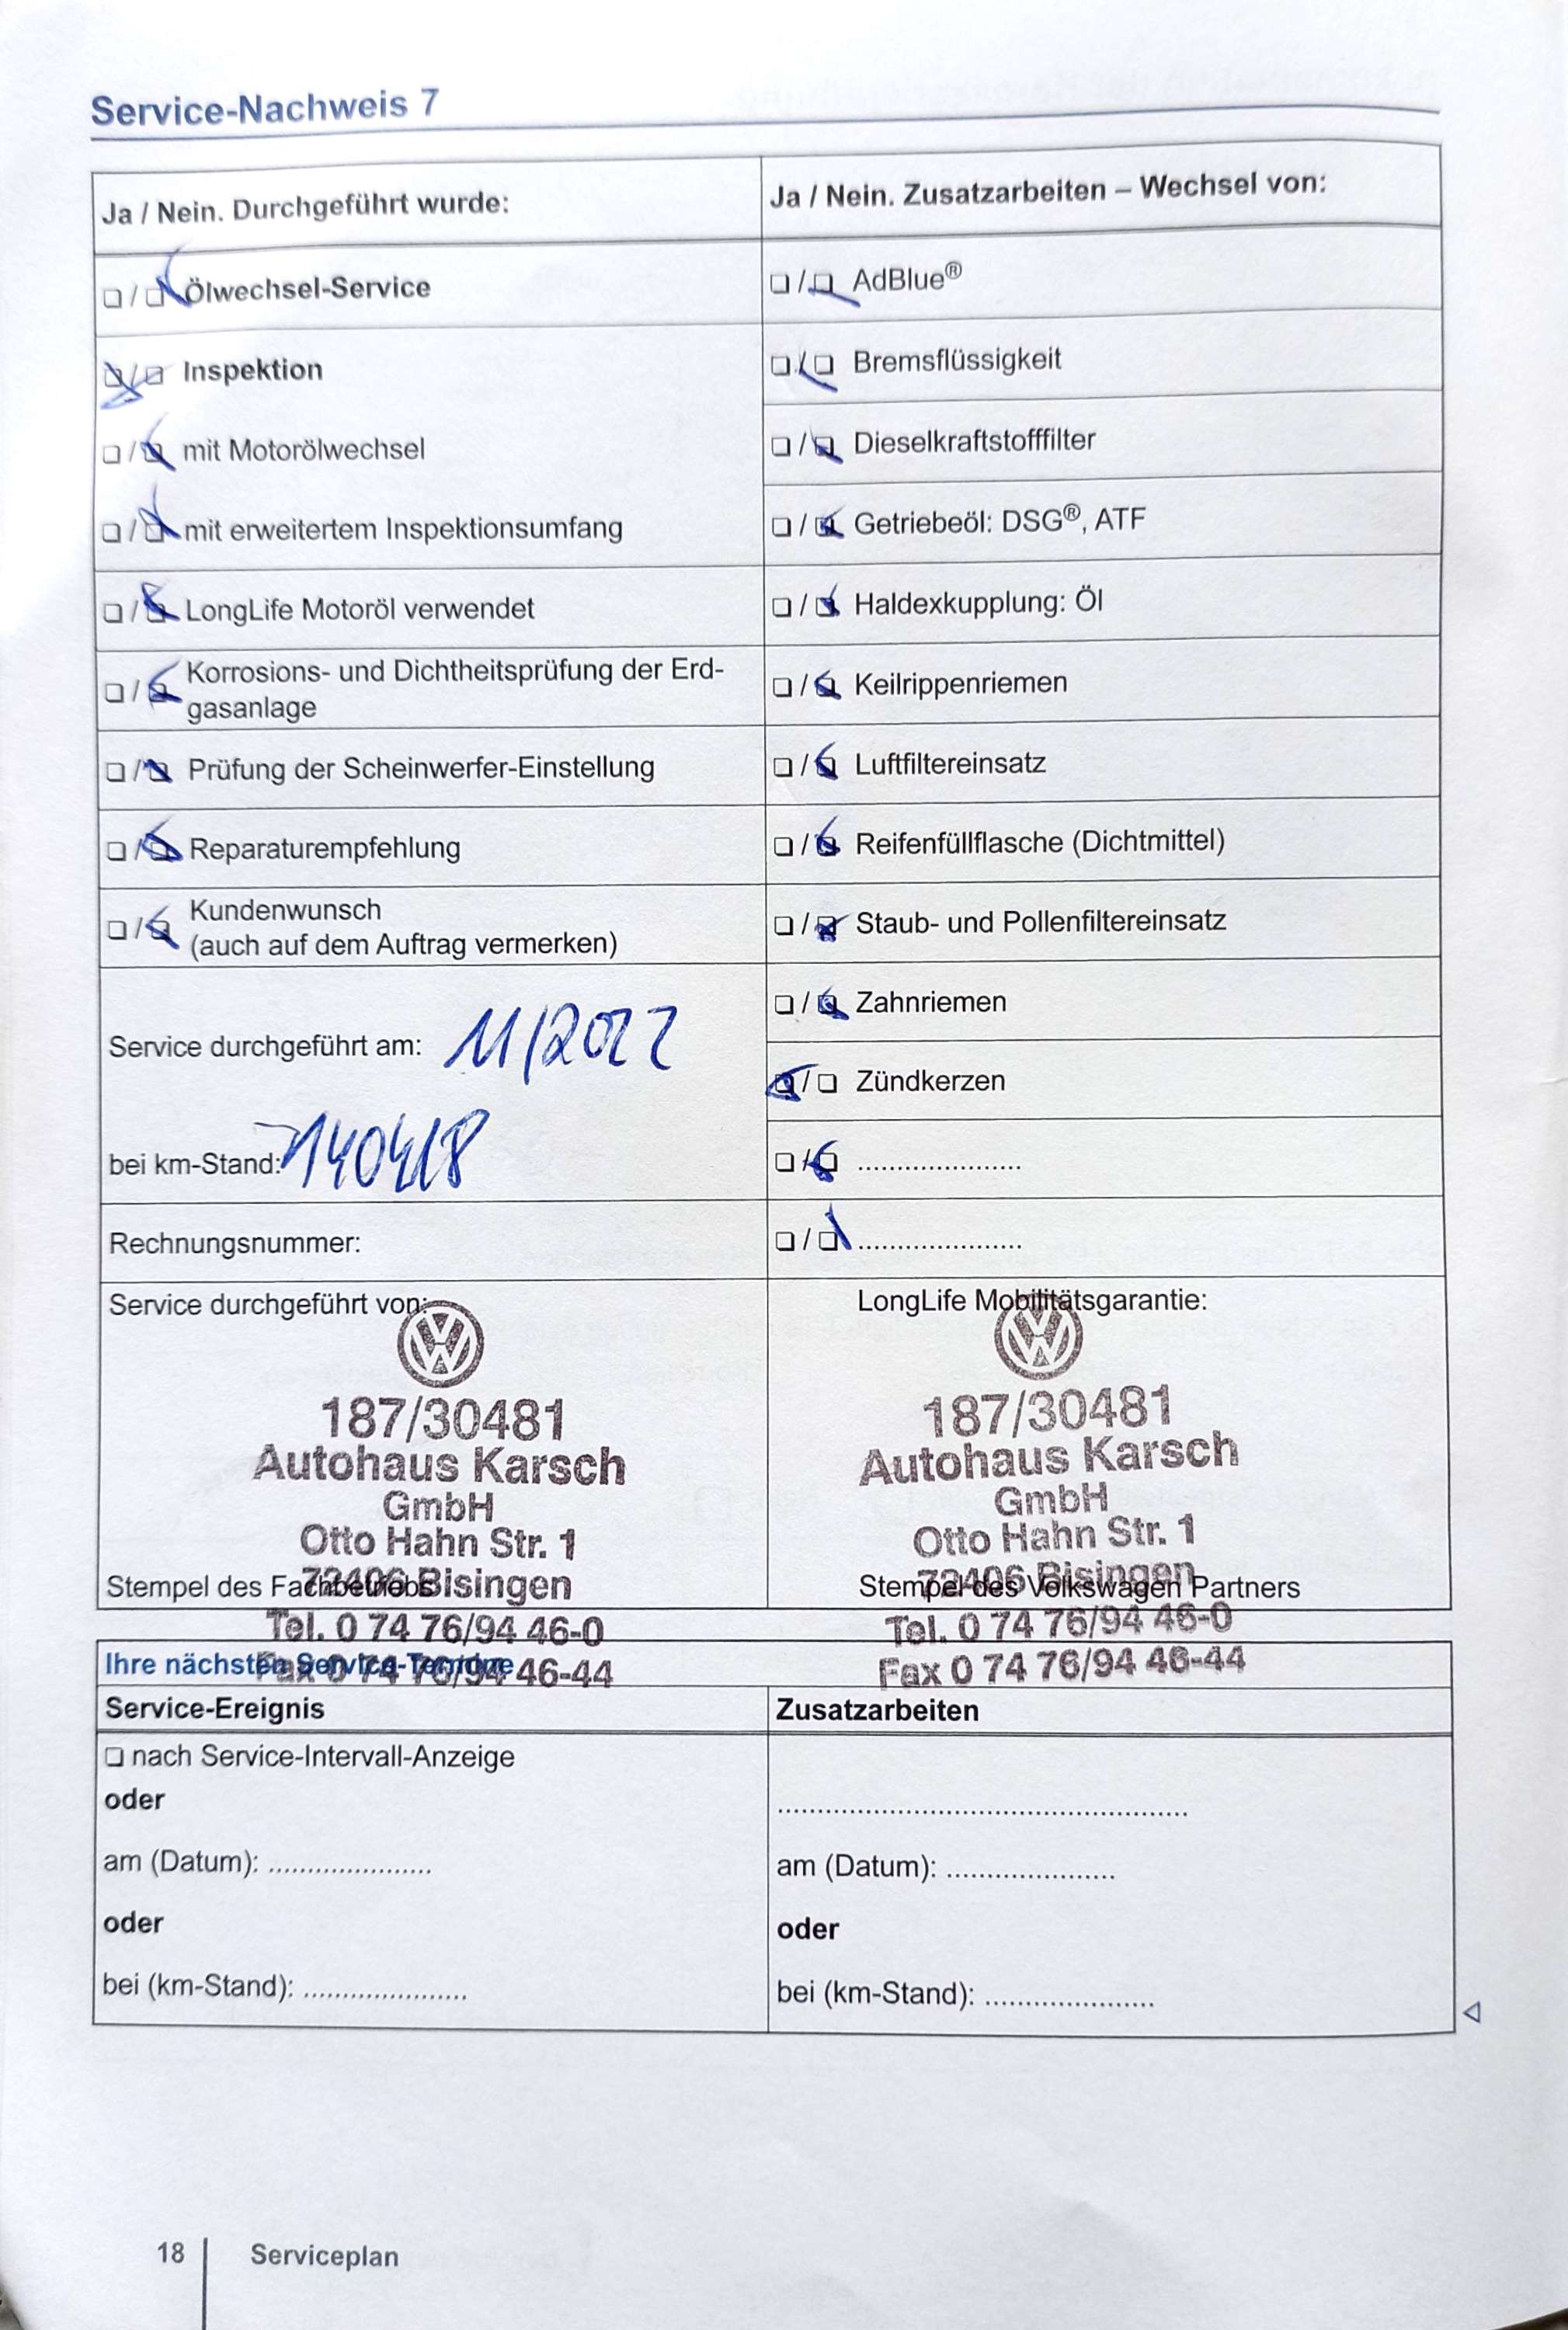 Service-Nachweis 7
Ja / Nein. Durchgeführt wurde:
❏ / ❏ Ölwechsel-Service
❏ / ❏ Inspektion
❏ / ❏ mit Motorölwechsel
❏ / ❏ mit erweitertem Inspektionsumfang
❏ / ❏ LongLife Motoröl verwendet
❏ / ❏ Korrosions- und Dichtheitsprüfung der Erd-
gasanlage
❏ / ❏ Prüfung der Scheinwerfer-Einstellung
❏ / ❏ Reparaturempfehlung
❏ / ❏ Kundenwunsch
(auch auf dem Auftrag vermerken)
Service durchgeführt am: 11/2022
bei km-Stand: 140418
Rechnungsnummer:
Ja / Nein. Zusatzarbeiten – Wechsel von:
❏ / ❏ AdBlue®
❏ / ❏ Bremsflüssigkeit
❏ / ❏ Dieselkraftstofffilter
❏ / ❏ Getriebeöl: DSG®, ATF
❏ / ❏ Haldexkupplung: Öl
❏ / ❏ Keilrippenriemen
❏ / ❏ Luftfiltereinsatz
❏ / ❏ Reifenfüllflasche (Dichtmittel)
❏ / ❏ Staub- und Pollenfiltereinsatz
❏ / ❏ Zahnriemen
❏ / ❏ Zündkerzen
❏ / ❏ .....................
❏ / ❏ .....................
Service durchgeführt von:
187/30481
Autohaus Karsch
GmbH
Otto Hahn Str. 1
72406 Bisingen
Stempel des Fachbetriebs
Tel. 0 74 76/94 46-0
Fax 0 74 76/94 46-44
LongLife Mobilitätsgarantie:
187/30481
Autohaus Karsch
GmbH
Otto Hahn Str. 1
72406 Bisingen
Stempel des Volkswagen Partners
Tel. 0 74 76/94 46-0
Fax 0 74 76/94 46-44
Ihre nächsten Service-Termine
Service-Ereignis
❏ nach Service-Intervall-Anzeige
oder
am (Datum): .....................
oder
bei (km-Stand): .....................
Zusatzarbeiten
.....................................................
am (Datum): .....................
oder
bei (km-Stand): .....................
18 Serviceplan